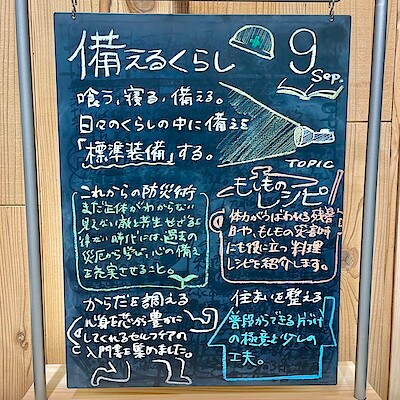 備えるくらし
9
Sep.
喰う、寝る、備える。
日々のくらしの中に備えを
「標準装備」する。
TOPIC
これからの防災術
まだ正体がわからない
見えない敵と共生せざるを
得ない時代には、過去の
災厄から学び、心の備え
を充実させること。
もしものレシピ
体力がうばわれる残暑
日や、もしもの災害時
にも役に立つ料理
レシピを紹介します。
からだを調える
心身を芯から豊かに
してくれるセルフケアの
入門書を集めました。
住まいを整える
普段からできる片づけ
の極意と少しの
工夫。